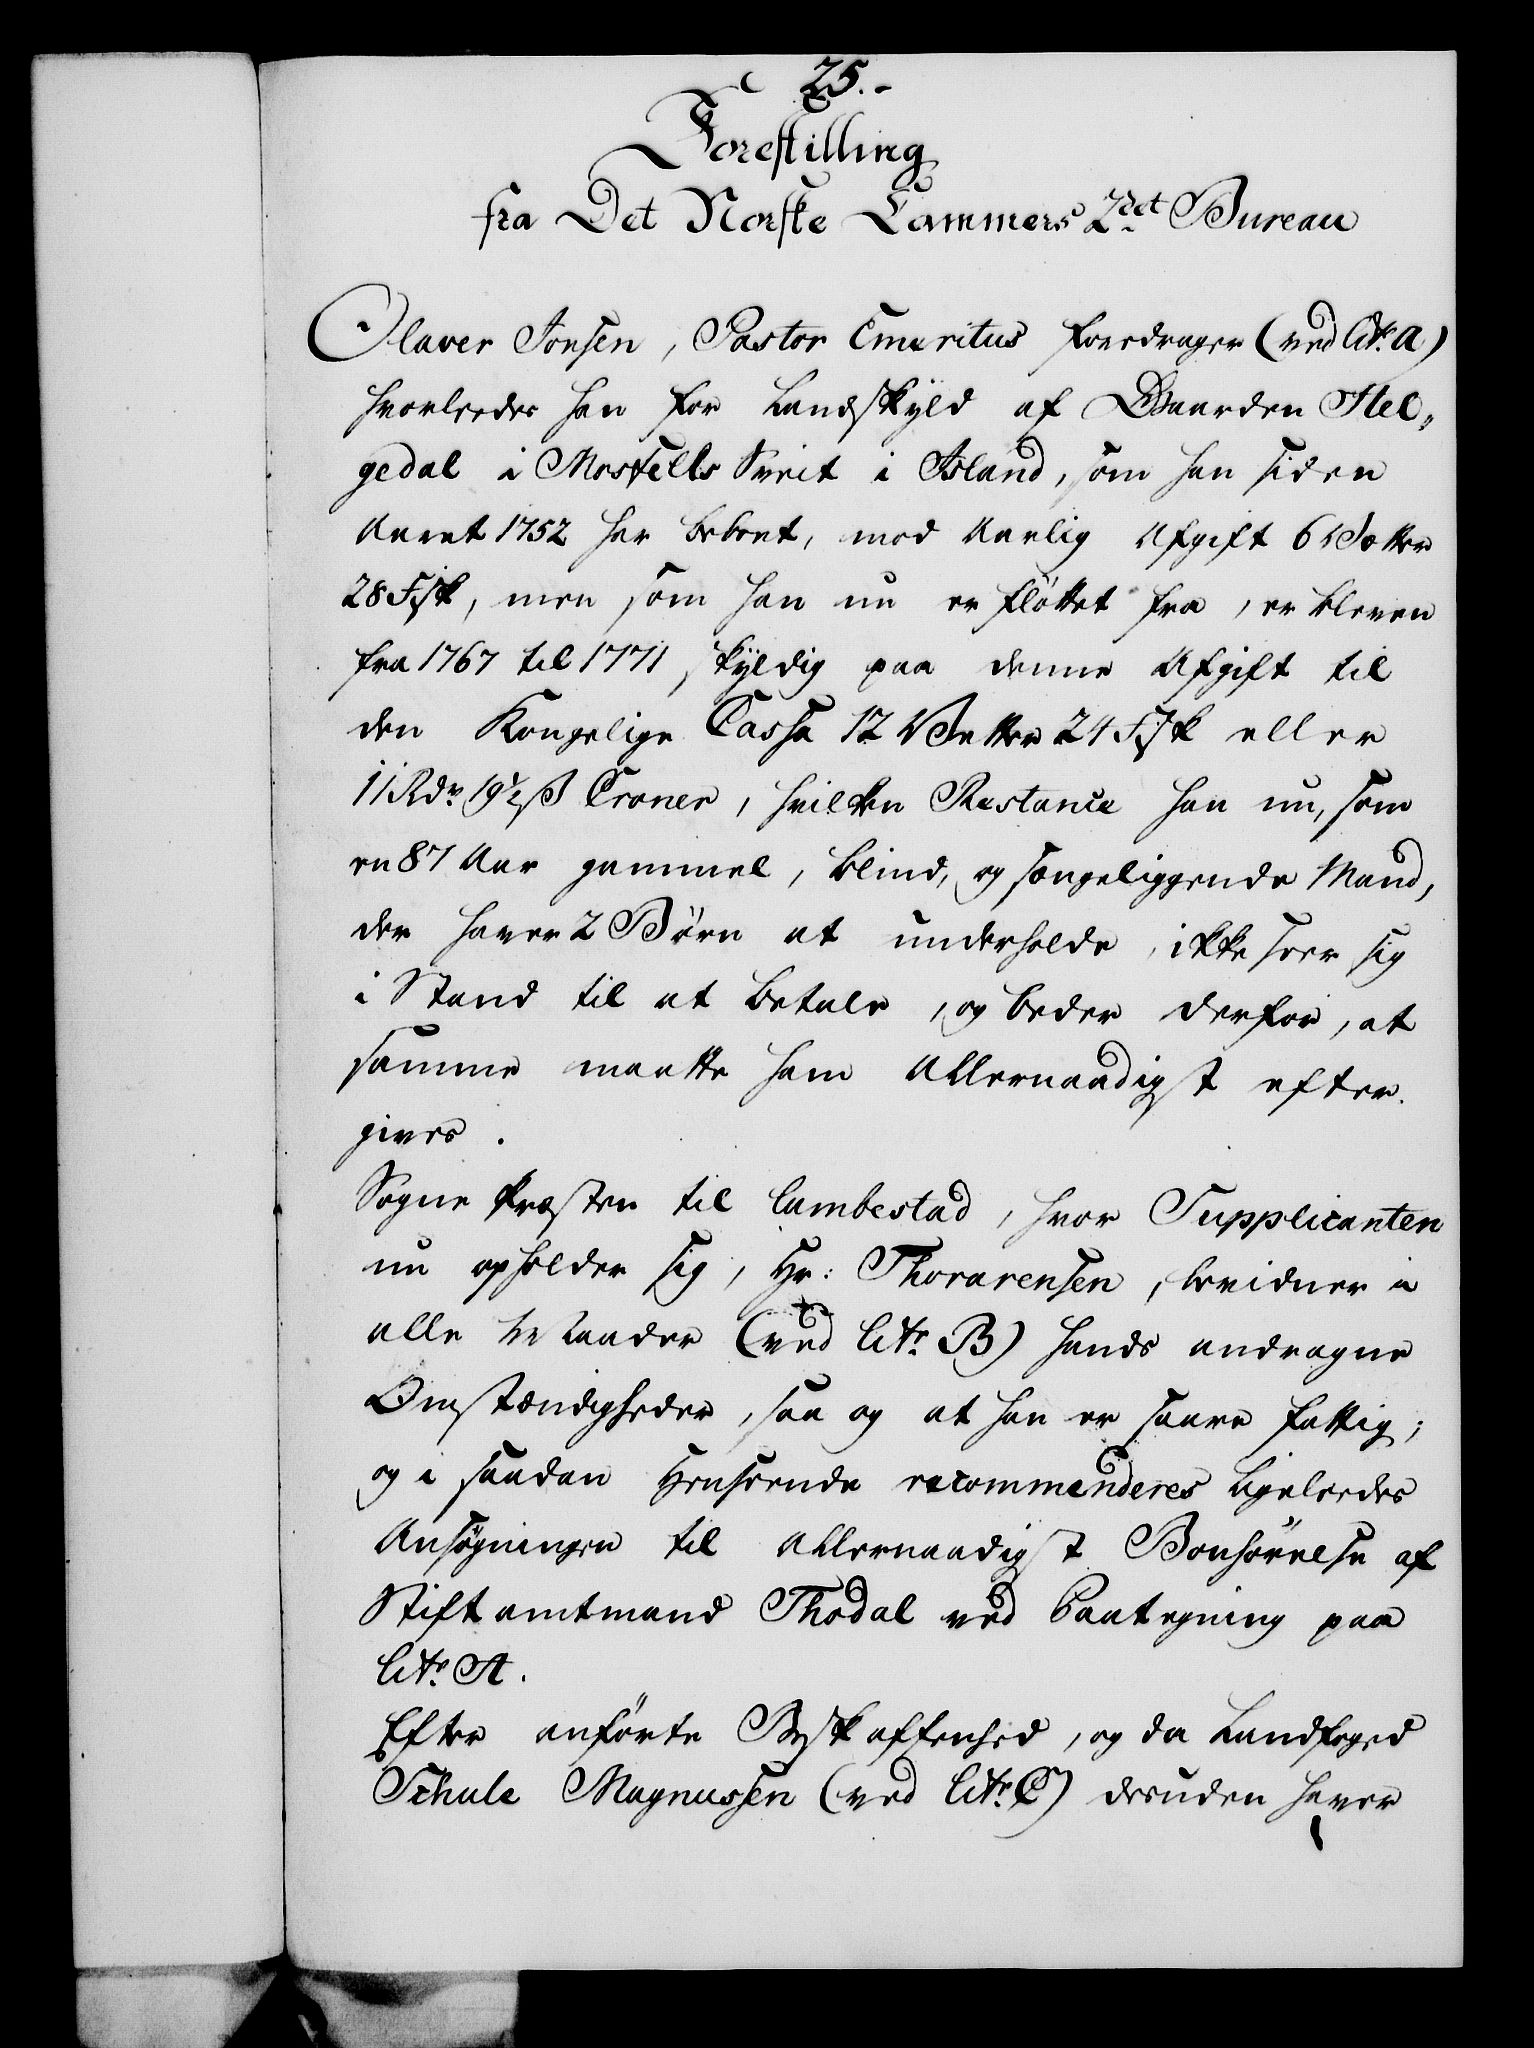 25.-
Forestilling
fra Det Norske Cammers 2det Bureau
Olaver Jonsen, Pastor Emeritus foredrager (ved Litr. A)
hvorleedes han for Landskyld af Gaarden Hel„
gedal i Mosfells Sveit i Island, som han siden
Aaret 1752 har beboet, mod Aarlig Afgift 6 Vetter
28 Fisk, men som han nu er fløttet fra, er bleven
fra 1767 til 1771 skyldig paa denne Afgift til
den Kongelige Cassa 12 Vetter 24 Fisk eller
11 Rdr 19½ ß Croner, hvilken Restance han nu, som
en 87 Aar gammel, blind, og sængeliggende Mand,
der haver 2 Børn at underholde, ikke seer sig
i Stand til at betale, og beder derfor, at
samme maatte ham Allernaadigst efter
gives.
Sogne Præsten til Lambestad, hvor Supplicanten
nu opholder sig, Hr: Thorarensen, bevidner i
alle Maader (ved Litr. B) hands andragne
Omstændigheder, saa og at han er saare fattig;
og i saadan Henseende recommenderes ligeleedes
Ansøgningen til Allernaadigst Bønhørelse af
Stiftamtmand Thodal ved Paategning paa
Litr. A.
Efter anførte Beskaffenhed, og da Landfoged
Schule Magnussen (ved Litr. C) desuden haver